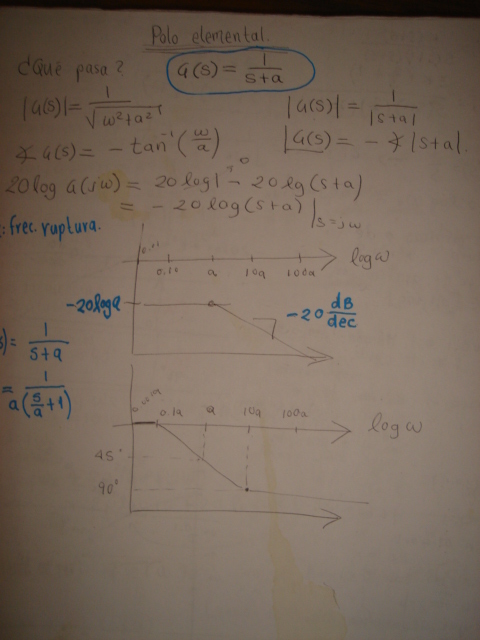 Polo elemental.
¿Qué pasa? G(s) = 1/(s+a)
|G(s)| = 1/√(ω²+a²) |G(s)| = 1/|s+a|
∡ G(s) = - tan⁻¹(ω/a) ∠G(s) = - ∡ |s+a|.
20 log G(jω) = 20 log 1 - 20 lg (s+a)
= - 20 log (s+a) |s=jω
: frec. ruptura.
0.1a a 10a 100a log ω
-20 log a
-20 dB/dec
s) = 1/(s+a)
= 1/(a(s/a+1))
0.1a a 10a 100a log ω
45°
90°